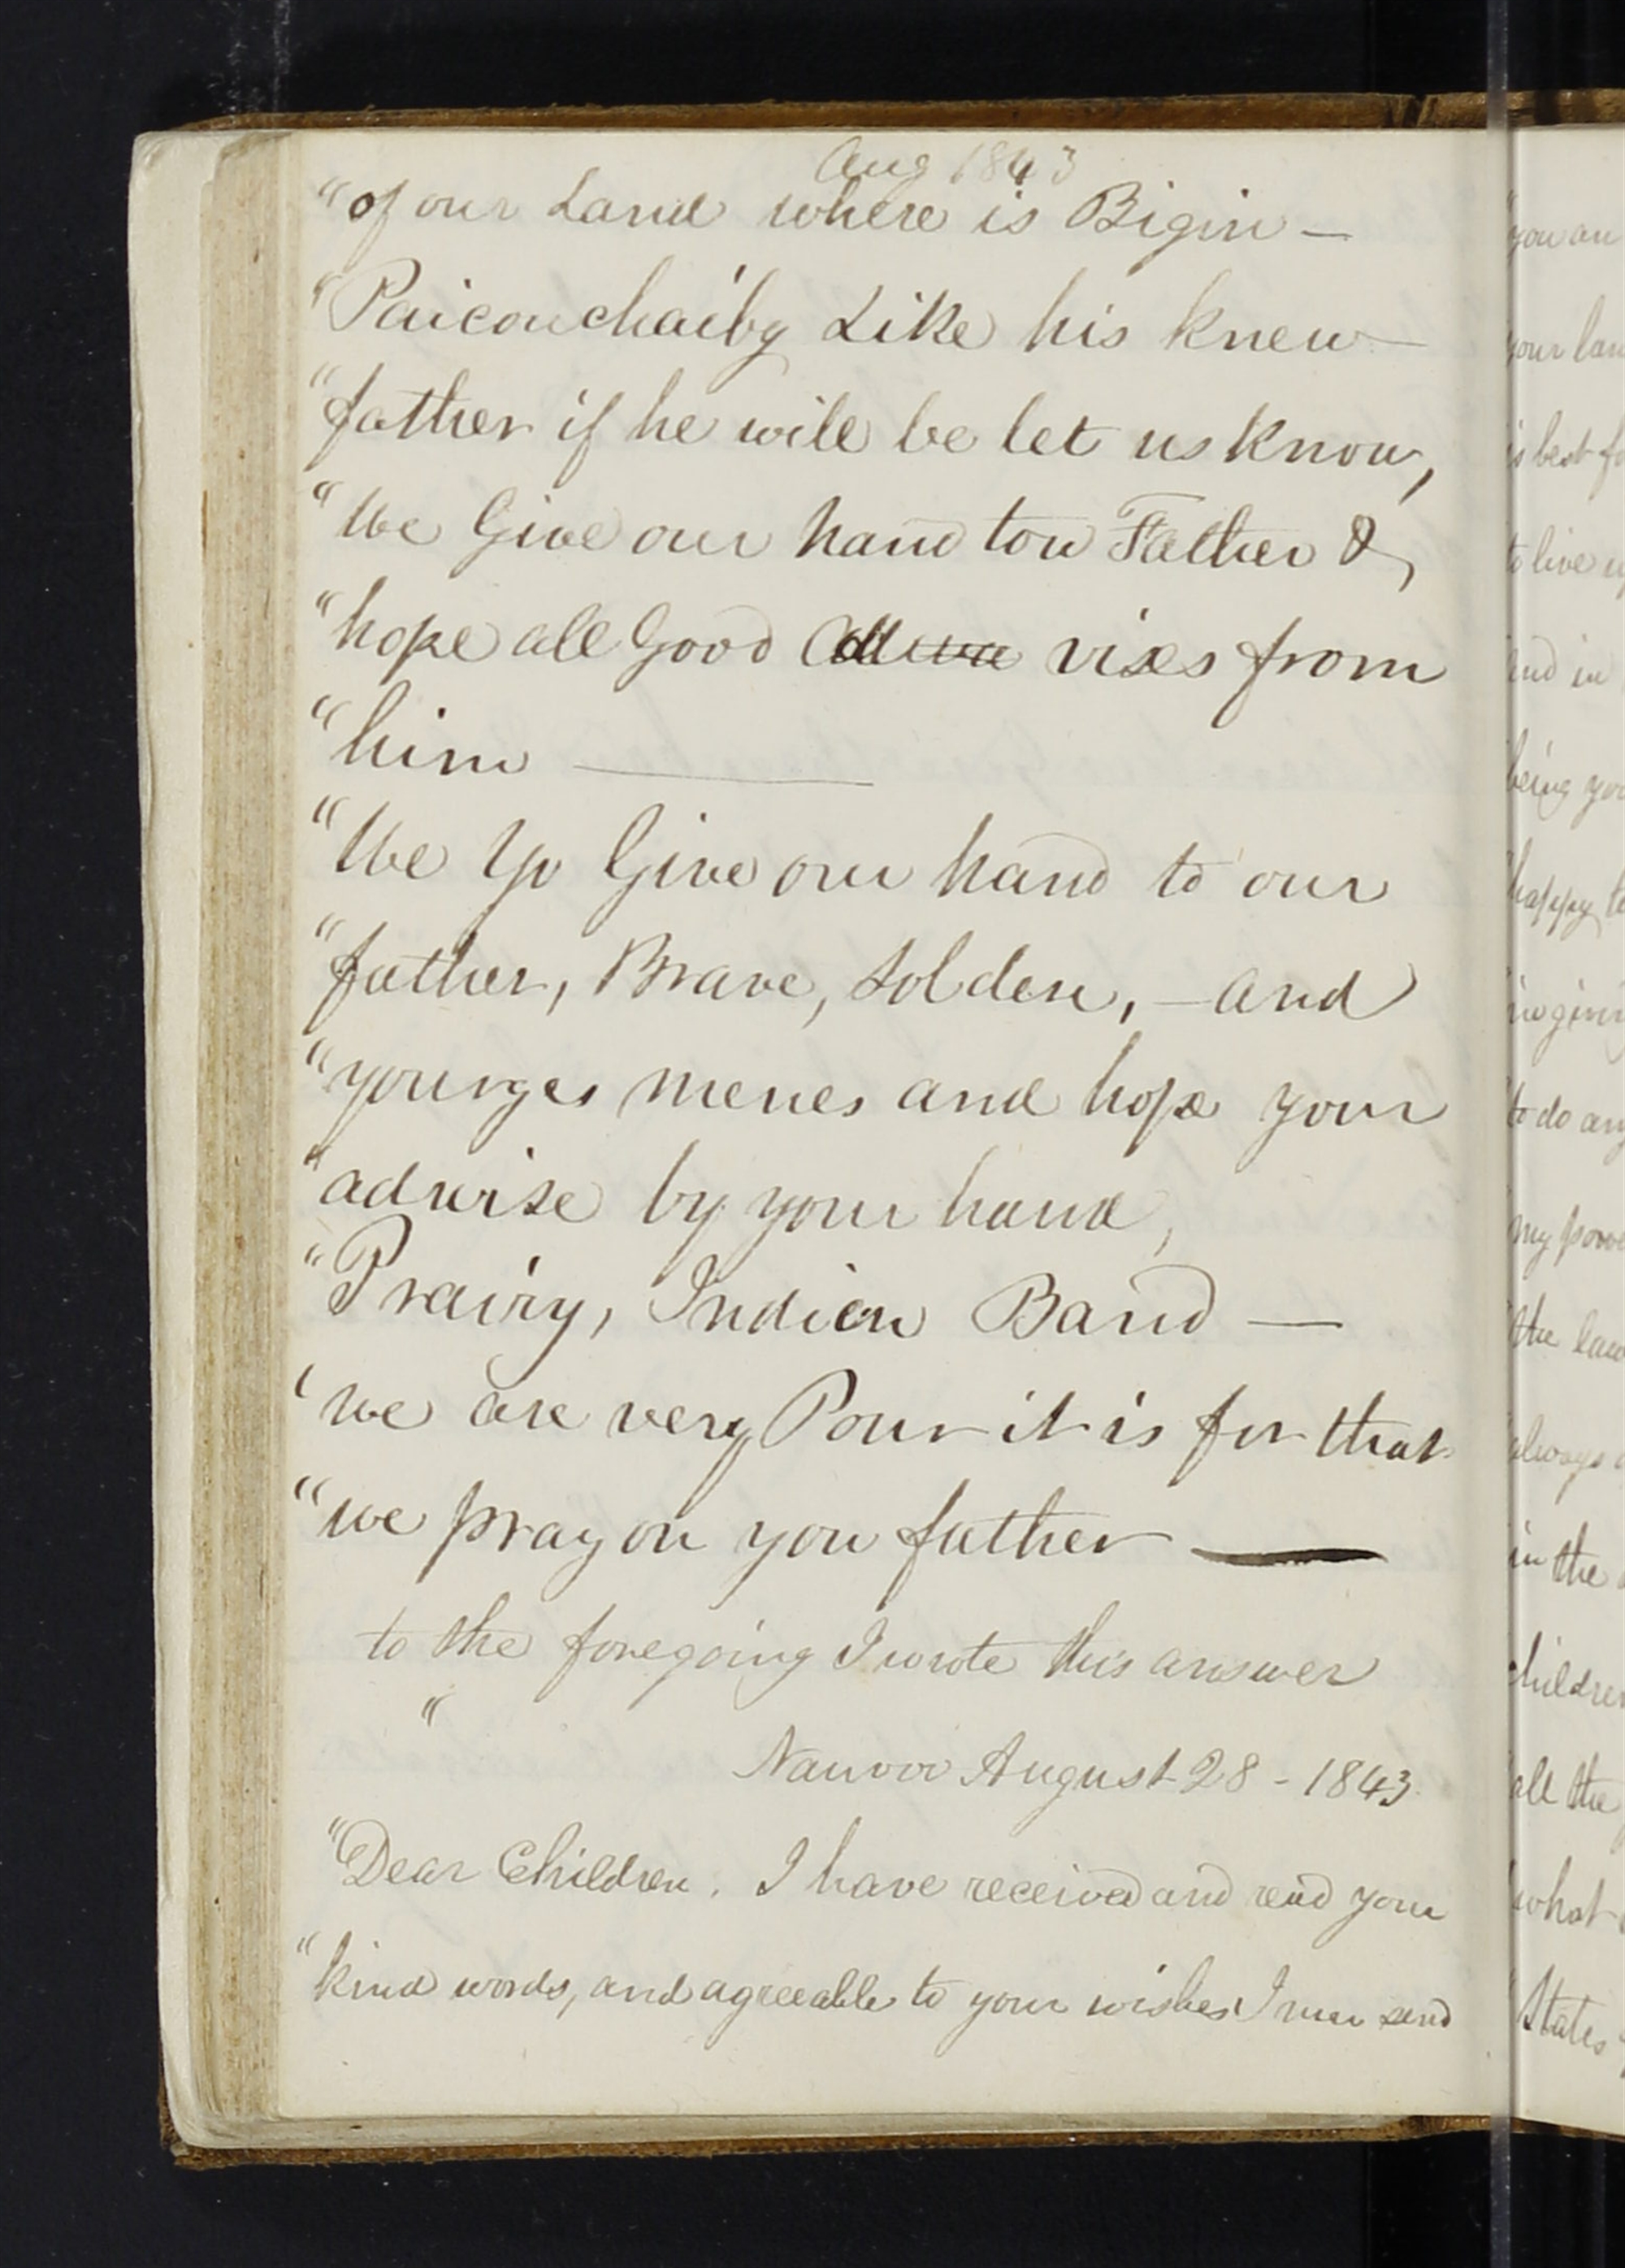 Aug 1843
"of our Land where is Bigin —
"Paicouchaiby Like his knew
"father if he will be let us know,
"We Give our hand tow Father &,
"hope all Good vises from
"him ———
"We Yo Give our hand to our
"father, Brave, Solden, — and
"younges menes and hope your
"adwise by your hand,
"Prairy, Indien Band —
'we are very Pour it is for that
"we pray on you father —
to the foregoing I wrote this answer
"
Nauvoo August 28 - 1843.
"Dear Children. I have received and read your
"kind words, and agreeable to your wishes I now send
you an
your lan
is best fo
to live
and in
being you
happy to
in givin
to do any
my power
the law
always
in the
children
all the
what
States